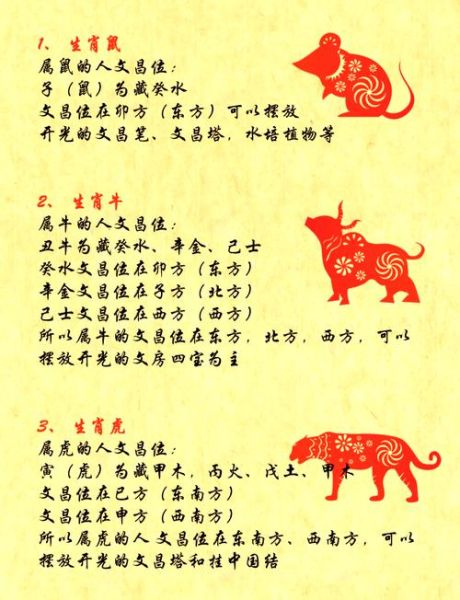 1、生肖鼠
属鼠的人文昌位：
子（鼠）为藏癸水
文昌位在卯方（东方）可以摆放
开光的文昌笔、文昌塔，水培植物等
2、生肖牛
属牛的人文昌位：
丑牛为藏癸水、辛金、己土
癸水文昌位在卯方（东方）
辛金文昌位在子方（北方）
己士文昌位在西方（西方）
所以属牛的文昌位在东方，北方，西方，可以
摆放开光的文房四宝为主
3、生肖虎
属虎的人文昌位：
寅（虎）为藏甲木，丙火、戊土、甲木
文昌位在巳方（东南方）
文昌位在申方（西南方）
所以属虎的人文昌位在东南方、西南方，可以
摆放开光的文昌塔和挂中国结